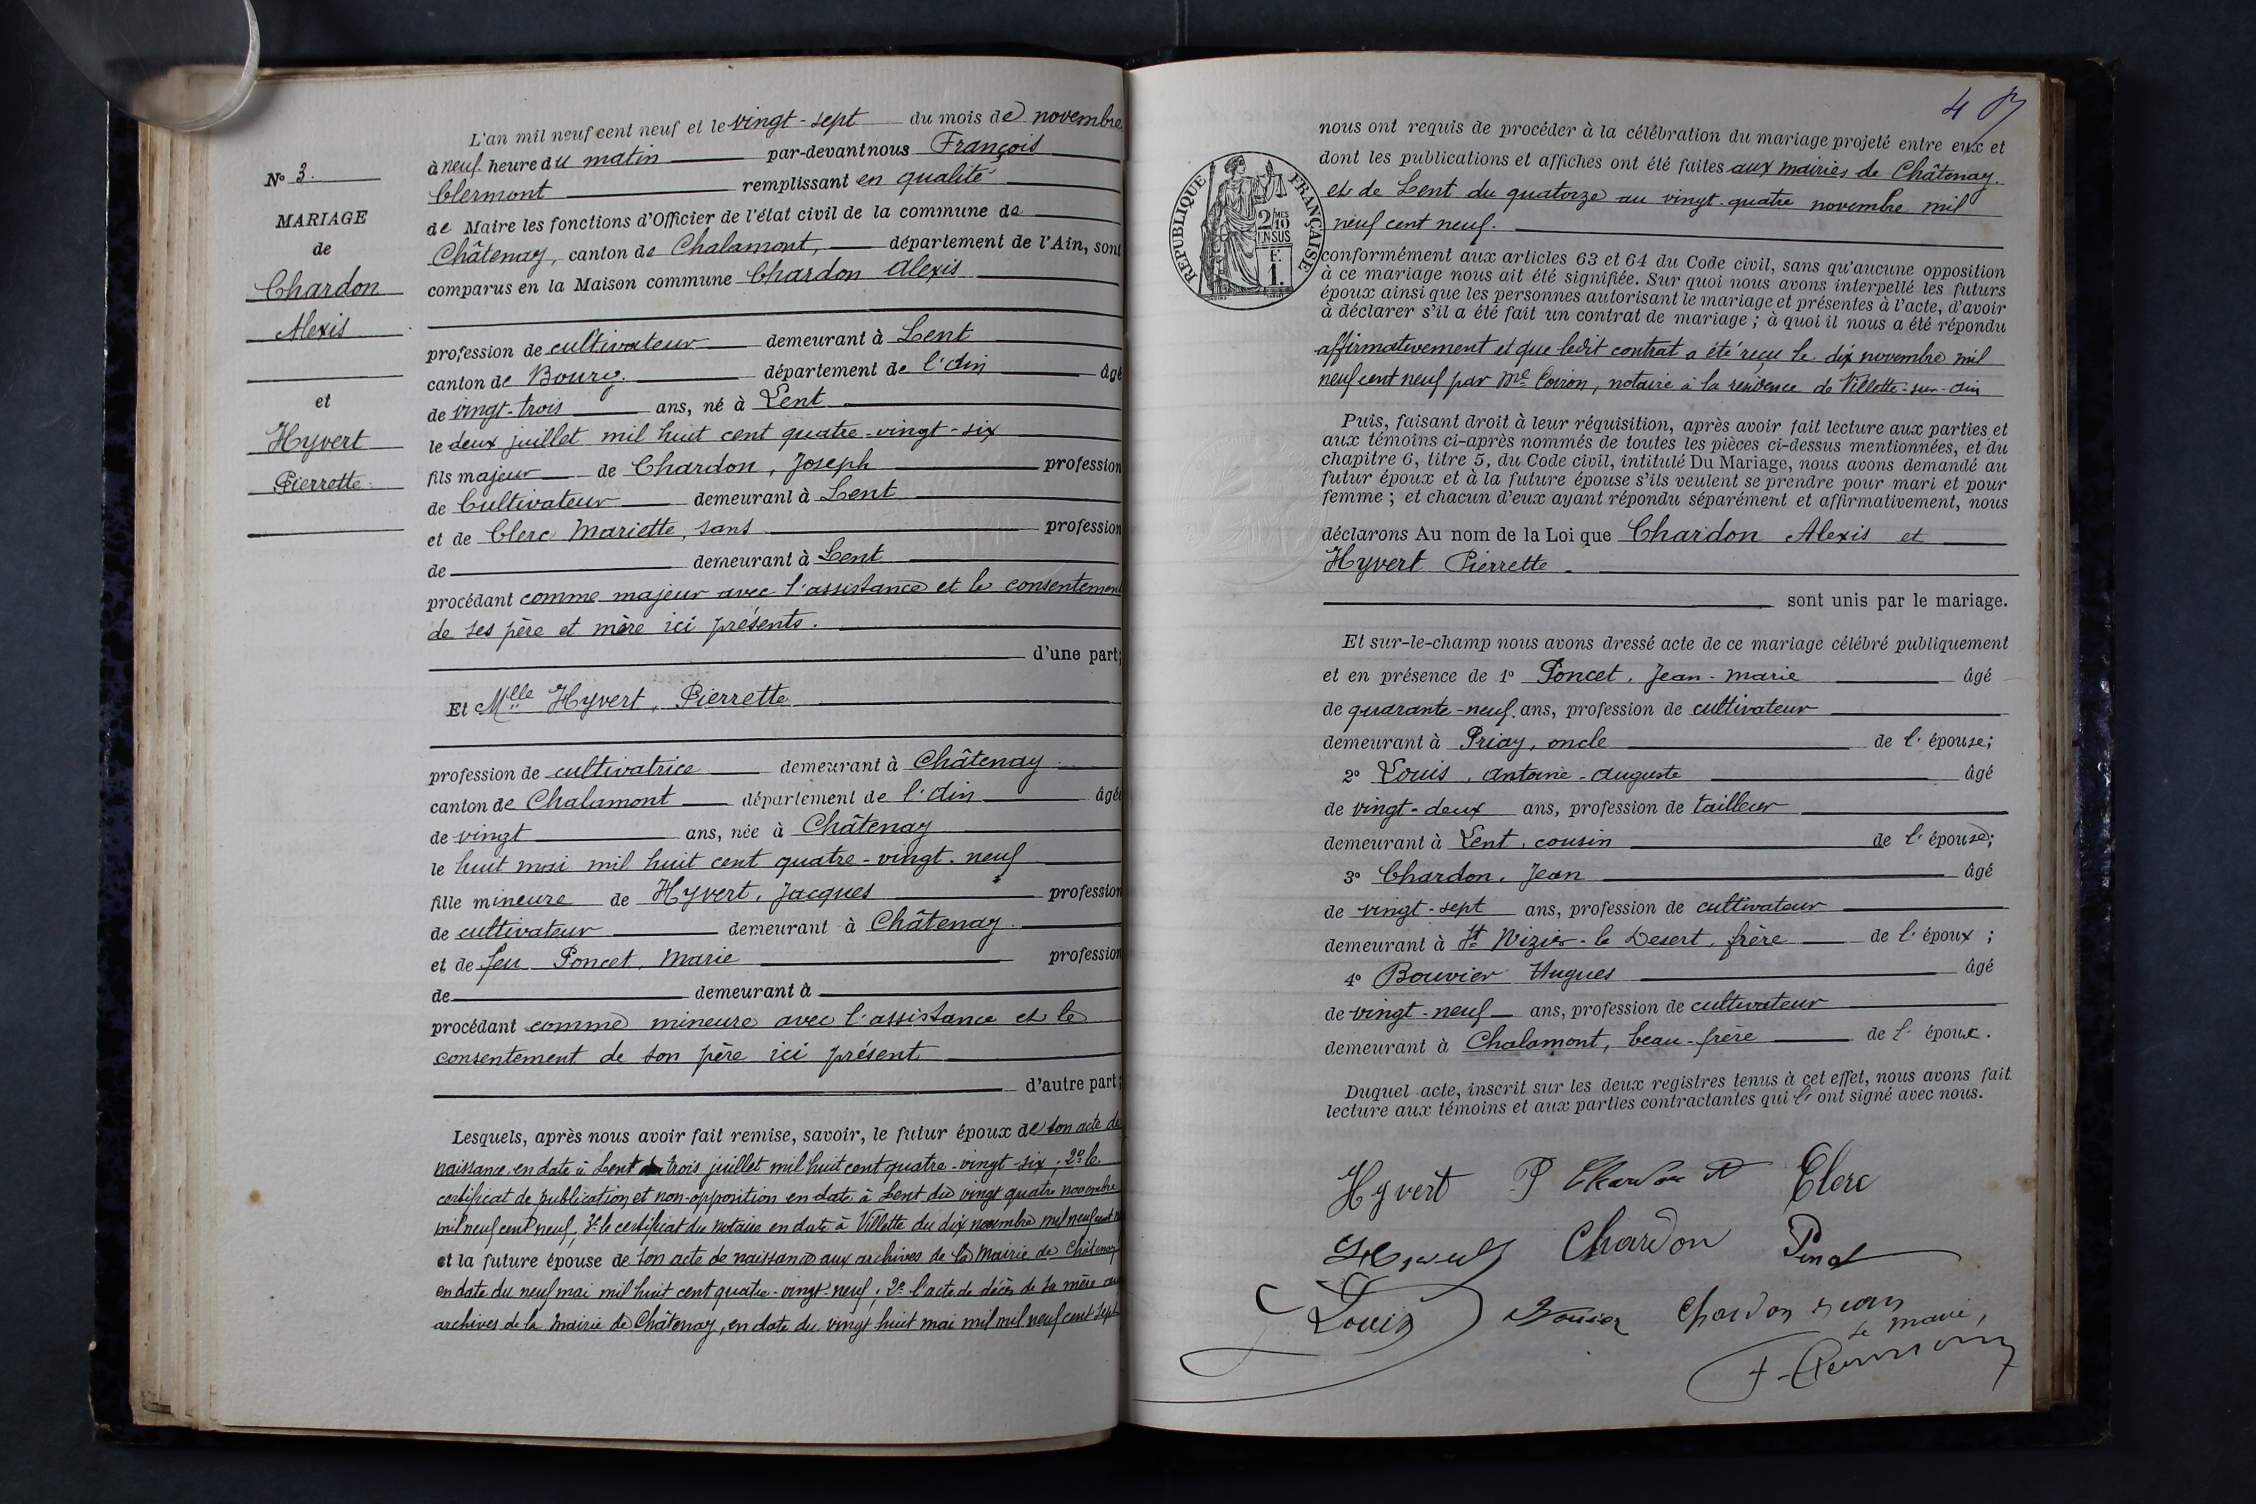 N° 3.
MARIAGE
de
Chardon
Alexis
et
Hyvert
Pierrette
L'an mil neuf cent neuf et le vingt-sept du mois de novembre
à neuf heure du matin par-devant nous François
Clermont remplissant en qualité
de Maire les fonctions d'Officier de l'état civil de la commune de
Châtenay, canton de Chalamont, département de l'Ain, sont
comparus en la Maison commune Chardon Alexis
profession de cultivateur demeurant à Lent
canton de Bourg. département de l'Ain âgé
de vingt-trois ans, né à Lent
le deux juillet mil huit cent quatre-vingt-six
fils majeur de Chardon, Joseph profession
de Cultivateur demeurant à Lent
et de Clerc Mariette, sans profession
de demeurant à Lent
procédant comme majeur avec l'assistance et le consentement
de ses père et mère ici présents.
d'une part;
Et Mlle Hyvert, Pierrette
profession de cultivatrice demeurant à Châtenay
canton de Chalamont département de l'Ain âgée
de vingt ans, née à Châtenay
le huit mai mil huit cent quatre-vingt-neuf
fille mineure de Hyvert, Jacques profession
de cultivateur demeurant à Châtenay.
et de feu Poncet, Marie profession
de demeurant à
procédant comme mineure avec l'assistance et le
consentement de son père ici présent
d'autre part;
Lesquels, après nous avoir fait remise, savoir, le futur époux de son acte de
naissance, en date à Lent du trois juillet mil huit cent quatre-vingt-six, 2° le
certificat de publication et non-opposition en date à Lent du vingt quatre novembre
mil neuf cent neuf, 3° le certificat du notaire en date à Villette du dix novembre mil neuf cent
et la future épouse de son acte de naissance aux archives de la Mairie de Châtenay
en date du neuf mai mil huit cent quatre-vingt-neuf; 2° l'acte de décès de sa mère aux
archives de la Mairie de Châtenay, en date du vingt huit mai mil mil neuf cent sept
4
RÉPUBLIQUE FRANÇAISE
2/10 MES
EN SUS
F.
1.
nous ont requis de procéder à la célébration du mariage projeté entre eux et
dont les publications et affiches ont été faites aux mairies de Châtenay.
et de Lent du quatorze au vingt-quatre novembre mil
neuf cent neuf.
conformément aux articles 63 et 64 du Code civil, sans qu'aucune opposition
à ce mariage nous ait été signifiée. Sur quoi nous avons interpellé les futurs
époux ainsi que les personnes autorisant le mariage et présentes à l'acte, d'avoir
à déclarer s'il a été fait un contrat de mariage; à quoi il nous a été répondu
affirmativement et que ledit contrat a été reçu le dix novembre mil
neuf cent neuf par Me Coiron, notaire à la résidence de Villette-sur-Ain
Puis, faisant droit à leur réquisition, après avoir fait lecture aux parties et
aux témoins ci-après nommés de toutes les pièces ci-dessus mentionnées, et du
chapitre 6, titre 5, du Code civil, intitulé Du Mariage, nous avons demandé au
futur époux et à la future épouse s'ils veulent se prendre pour mari et pour
femme; et chacun d'eux ayant répondu séparément et affirmativement, nous
déclarons Au nom de la Loi que Chardon Alexis et
Hyvert Pierrette
sont unis par le mariage.
Et sur-le-champ nous avons dressé acte de ce mariage célébré publiquement
et en présence de 1° Poncet, Jean-Marie âgé
de quarante-neuf. ans, profession de cultivateur
demeurant à Priay, oncle de l'épouse;
2° Louis, Antoine-Auguste âgé
de vingt-deux ans, profession de tailleur
demeurant à Lent, cousin de l'épouse;
3° Chardon, Jean âgé
de vingt-sept ans, profession de cultivateur
demeurant à St Nizier-le Desert, frère de l'époux;
4° Bouvier Hugues âgé
de vingt-neuf ans, profession de cultivateur
demeurant à Chalamont, beau-frère de l'époux.
Duquel acte, inscrit sur les deux registres tenus à cet effet, nous avons fait
lecture aux témoins et aux parties contractantes qui l' ont signé avec nous.
Hyvert P Chardon A Clerc
Chardon
Louis Bouvier Chardon Jean
Le maire,
F. Clermont